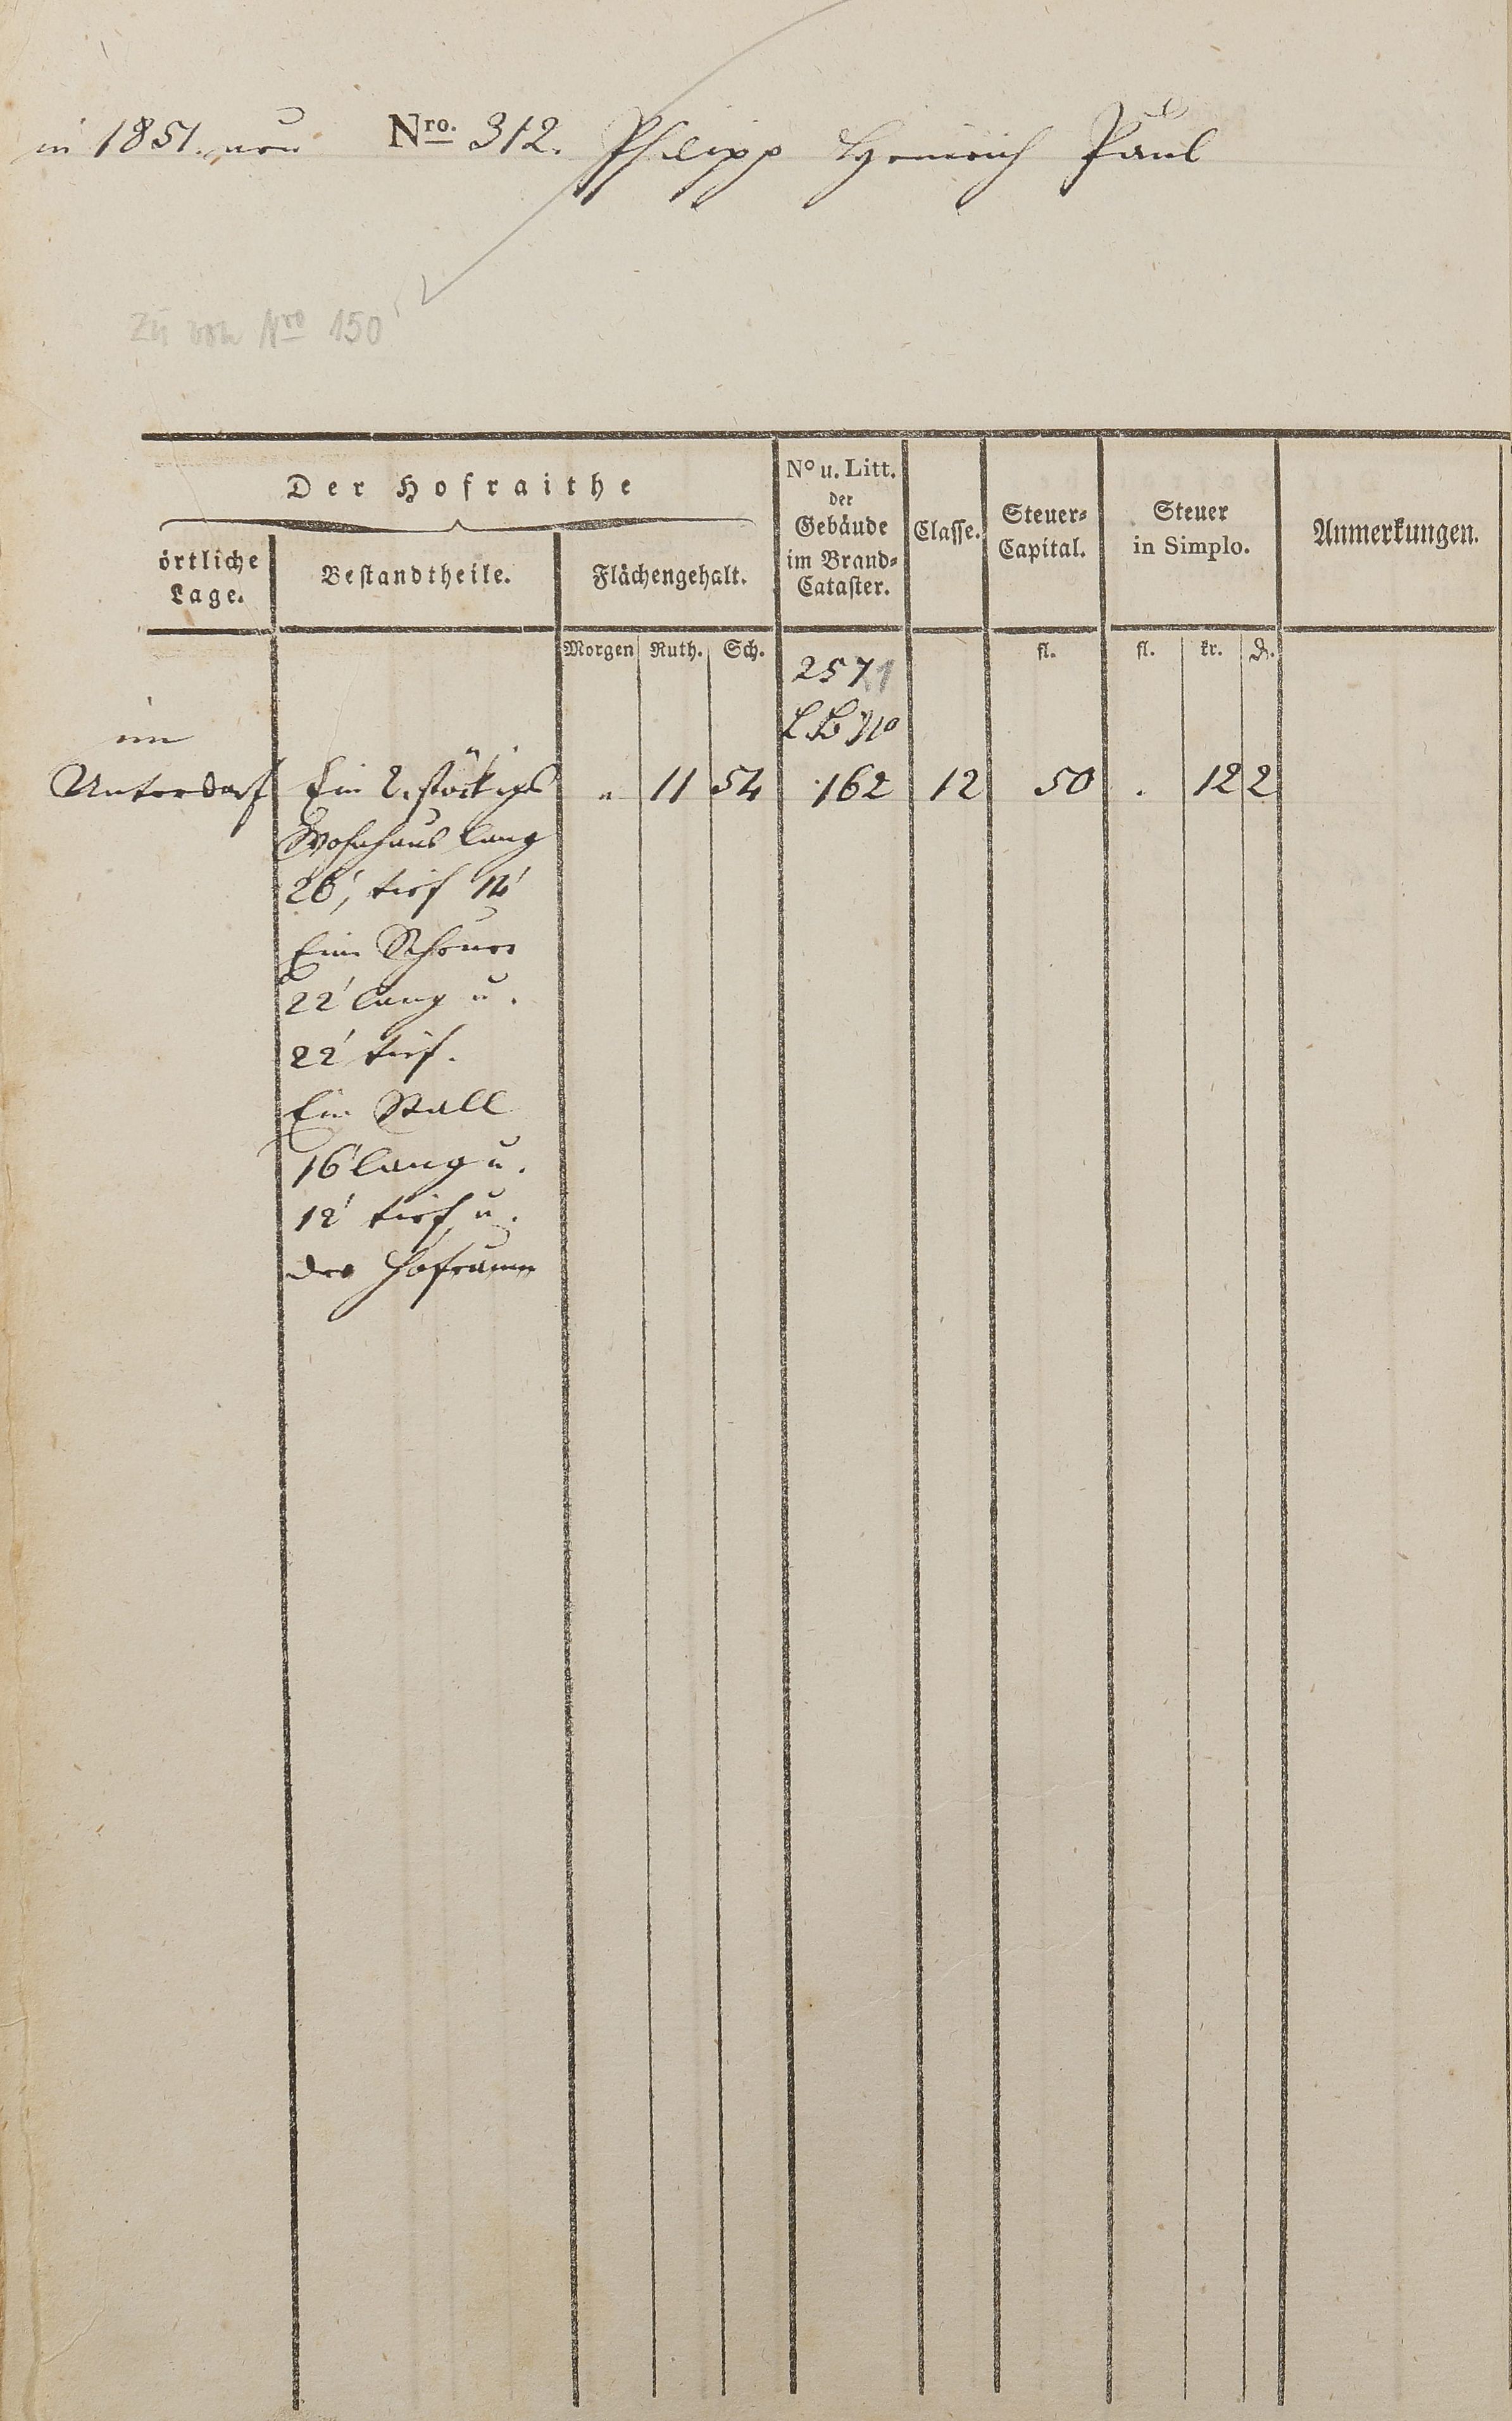 in 1851. neu Nro. 312. Philipp Heinrich Paul
Zu von Nro 150
Der Hofraithe
örtliche Lage.
Bestandtheile.
Flächengehalt.
No u. Litt. der Gebäude im Brand-Cataster.
Classe.
Steuer-Capital.
Steuer in Simplo.
Anmerkungen.
Morgen Ruth. Sch. fl. fl. kr. ₰.
257
L. B No
im
Unterdorf Ein 2. stöckiges " 11 54 162 12 50 . 12 2
Wohnhaus lang
26', tief 14'
Eine Scheuer
22' lang u.
22' tief.
Ein Stall
16' lang u.
12' tief u.
der Hofraum